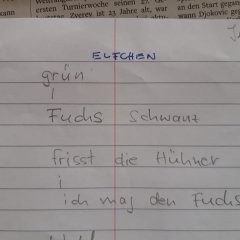 ersten Turnierwoche seinen
Zverev ist 23 Jahre alt, war
an den Start gegan
wann Djokovic gegen
ELFCHEN
grün
Fuchs Schwanz
frisst die Hühner
ich mag den Fuchs